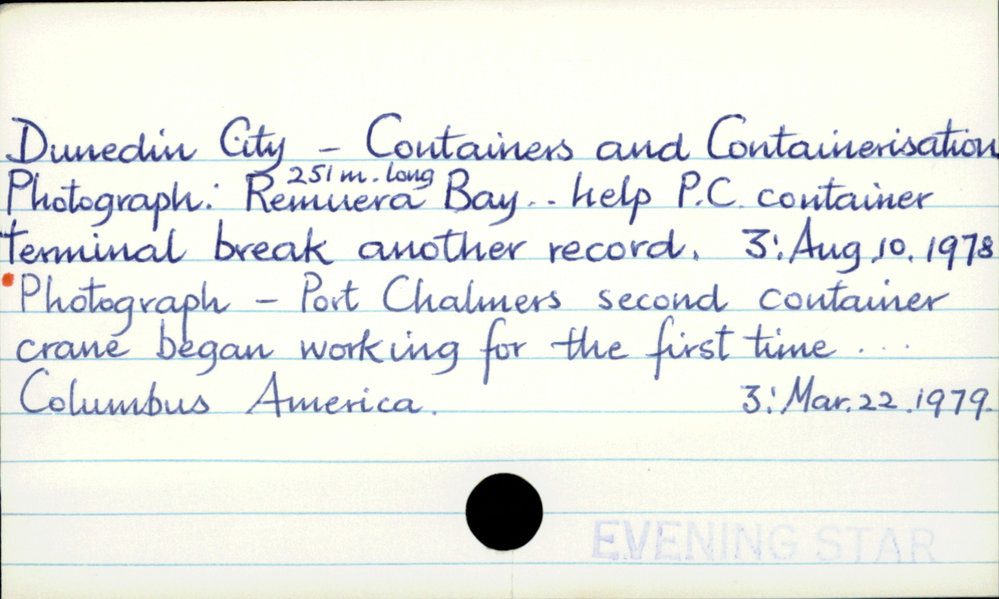 Dunedin City - Containers and Containerisation
251 m. long
Photograph: Remuera Bay.. help P.C. container
terminal break another record. 3: Aug 10. 1978
Photograph - Port Chalmers second container
crane began working for the first time ...
Columbus America. 3: Mar. 22. 1979.
EVENING STAR